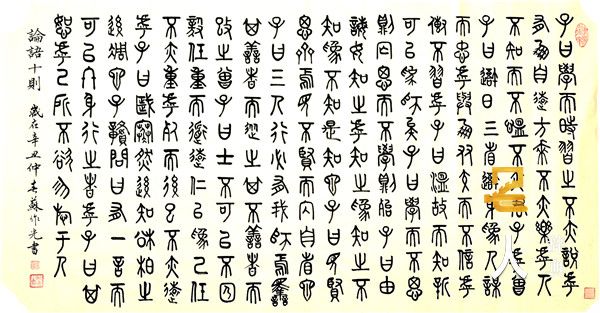 子曰學而時習之不亦說乎
有朋自遠方來不亦樂乎人
不知而不慍不亦君子乎曾
子曰吾日三省吾身為人謀
而不忠乎與朋友交而不信乎
傳不習乎子曰溫故而知新
可以為師矣子曰學而不思
則罔思而不學則殆子曰由
誨女知之乎知之為知之不
知為不知是知也子曰見賢
思齊焉見不賢而內自省也
子曰三人行必有我師焉擇
其善者而從之其不善者而
改之曾子曰士不可以不弘
毅任重而道遠仁以為己任
不亦重乎死而後已不亦遠
乎子曰歲寒然後知松柏之
後凋也子貢問曰有一言而
可以終身行之者乎子曰其
恕乎己所不欲勿施于人
論語十則 歲在辛丑仲 蘇作光書